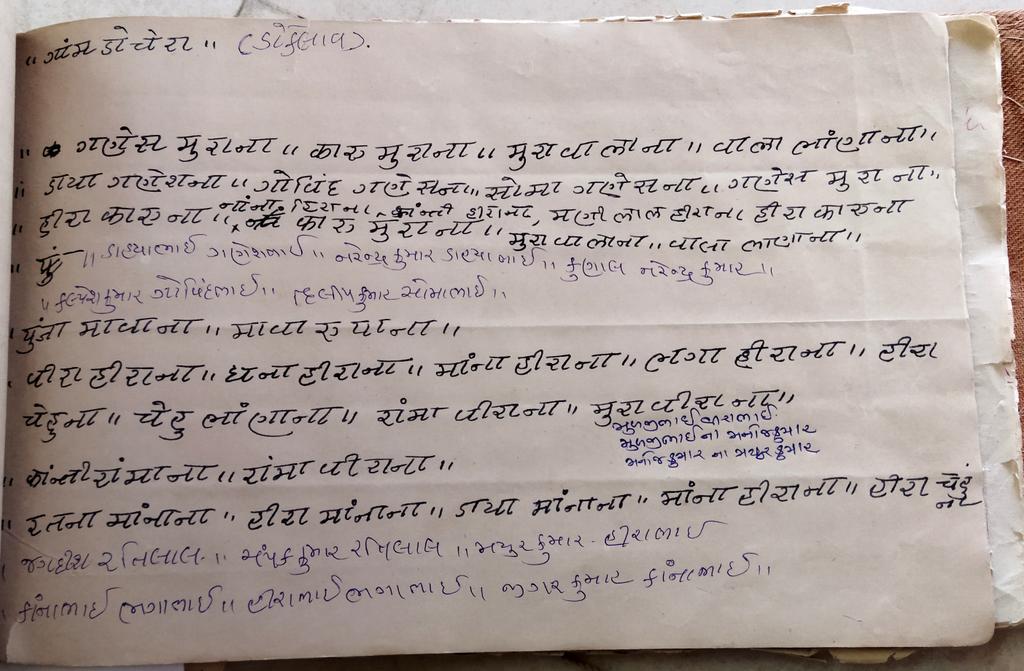 " ગાંમ ડાચેરા " (ડોકલાવ).
" ગણેસ મુરાના " કારુ મુરાના " મુરા વાલાના " વાલા ભાંણાના "
" ડાયા ગણેશના " ગોવિંદ ગણેસના " સોમા ગણેસના " ગણેસ મુરાના "
" હીરા કારુના " નાંના હિરાના, કાંન્તી હીરાના, મણીલાલ હીરાના હીરા કારુના
કારુ મુરાના " મુરા વાલાના " વાલા ભાણાના "
" ડાહ્યાભાઈ ગણેશભાઈ " નરેન્દ્રકુમાર ડાહ્યાભાઈ " કુણાલ નરેન્દ્રકુમાર "
" કલ્પેશકુમાર ગોવિંદભાઈ " દિલીપકુમાર સોમાભાઈ "
" પુંજા માવાના " માવા રુપાના "
" વીરા હીરાના " ઘના હીરાના " માંના હીરાના " ભગા હીરાના " હીરા
ચેહુના " ચેહુ ભાંણાના " રાંમા વીરાના " મુરા વીરાના "
મુળજીભાઈ વીરાભાઈ
મુળજીભાઈ ના મનોજકુમાર
મનોજકુમાર ના મયુરકુમાર
" કાંન્તી રાંમાના " રાંમા વીરાના "
" રતના માંનાના " હીરા માંનાના " ડાયા માંનાના " માંના હીરાના " હીરા ચેહું
ના
" જગદીશ રતિલાલ " ચંપકકુમાર રતિલાલ " મયુરકુમાર હીરાભાઈ
" કાંનાભાઈ ભગાભાઈ " હીરાભાઈ ભગાભાઈ " જીગરકુમાર કાંનાભાઈ "